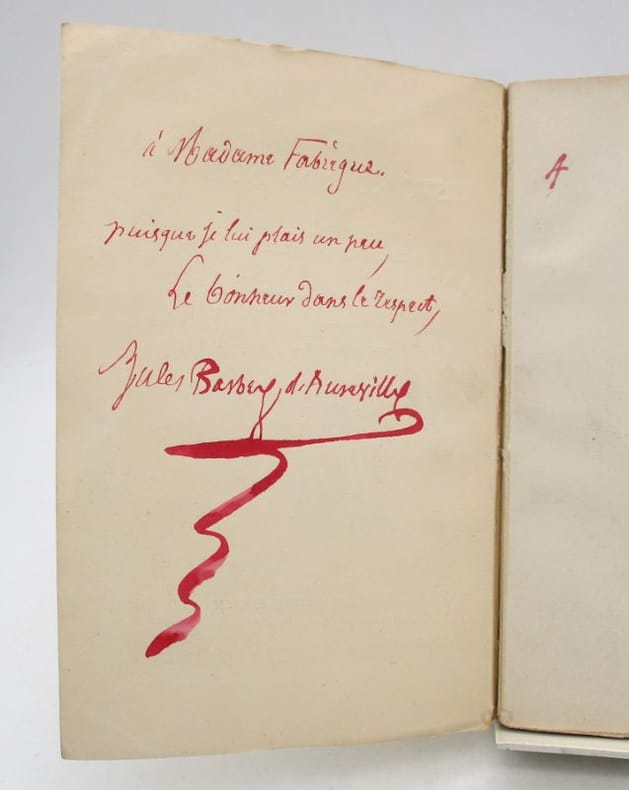 à Madame Fabrègue.
puisque je lui plais un peu,
Le bonheur dans le respect,
Jules Barbey d'Aurevilly